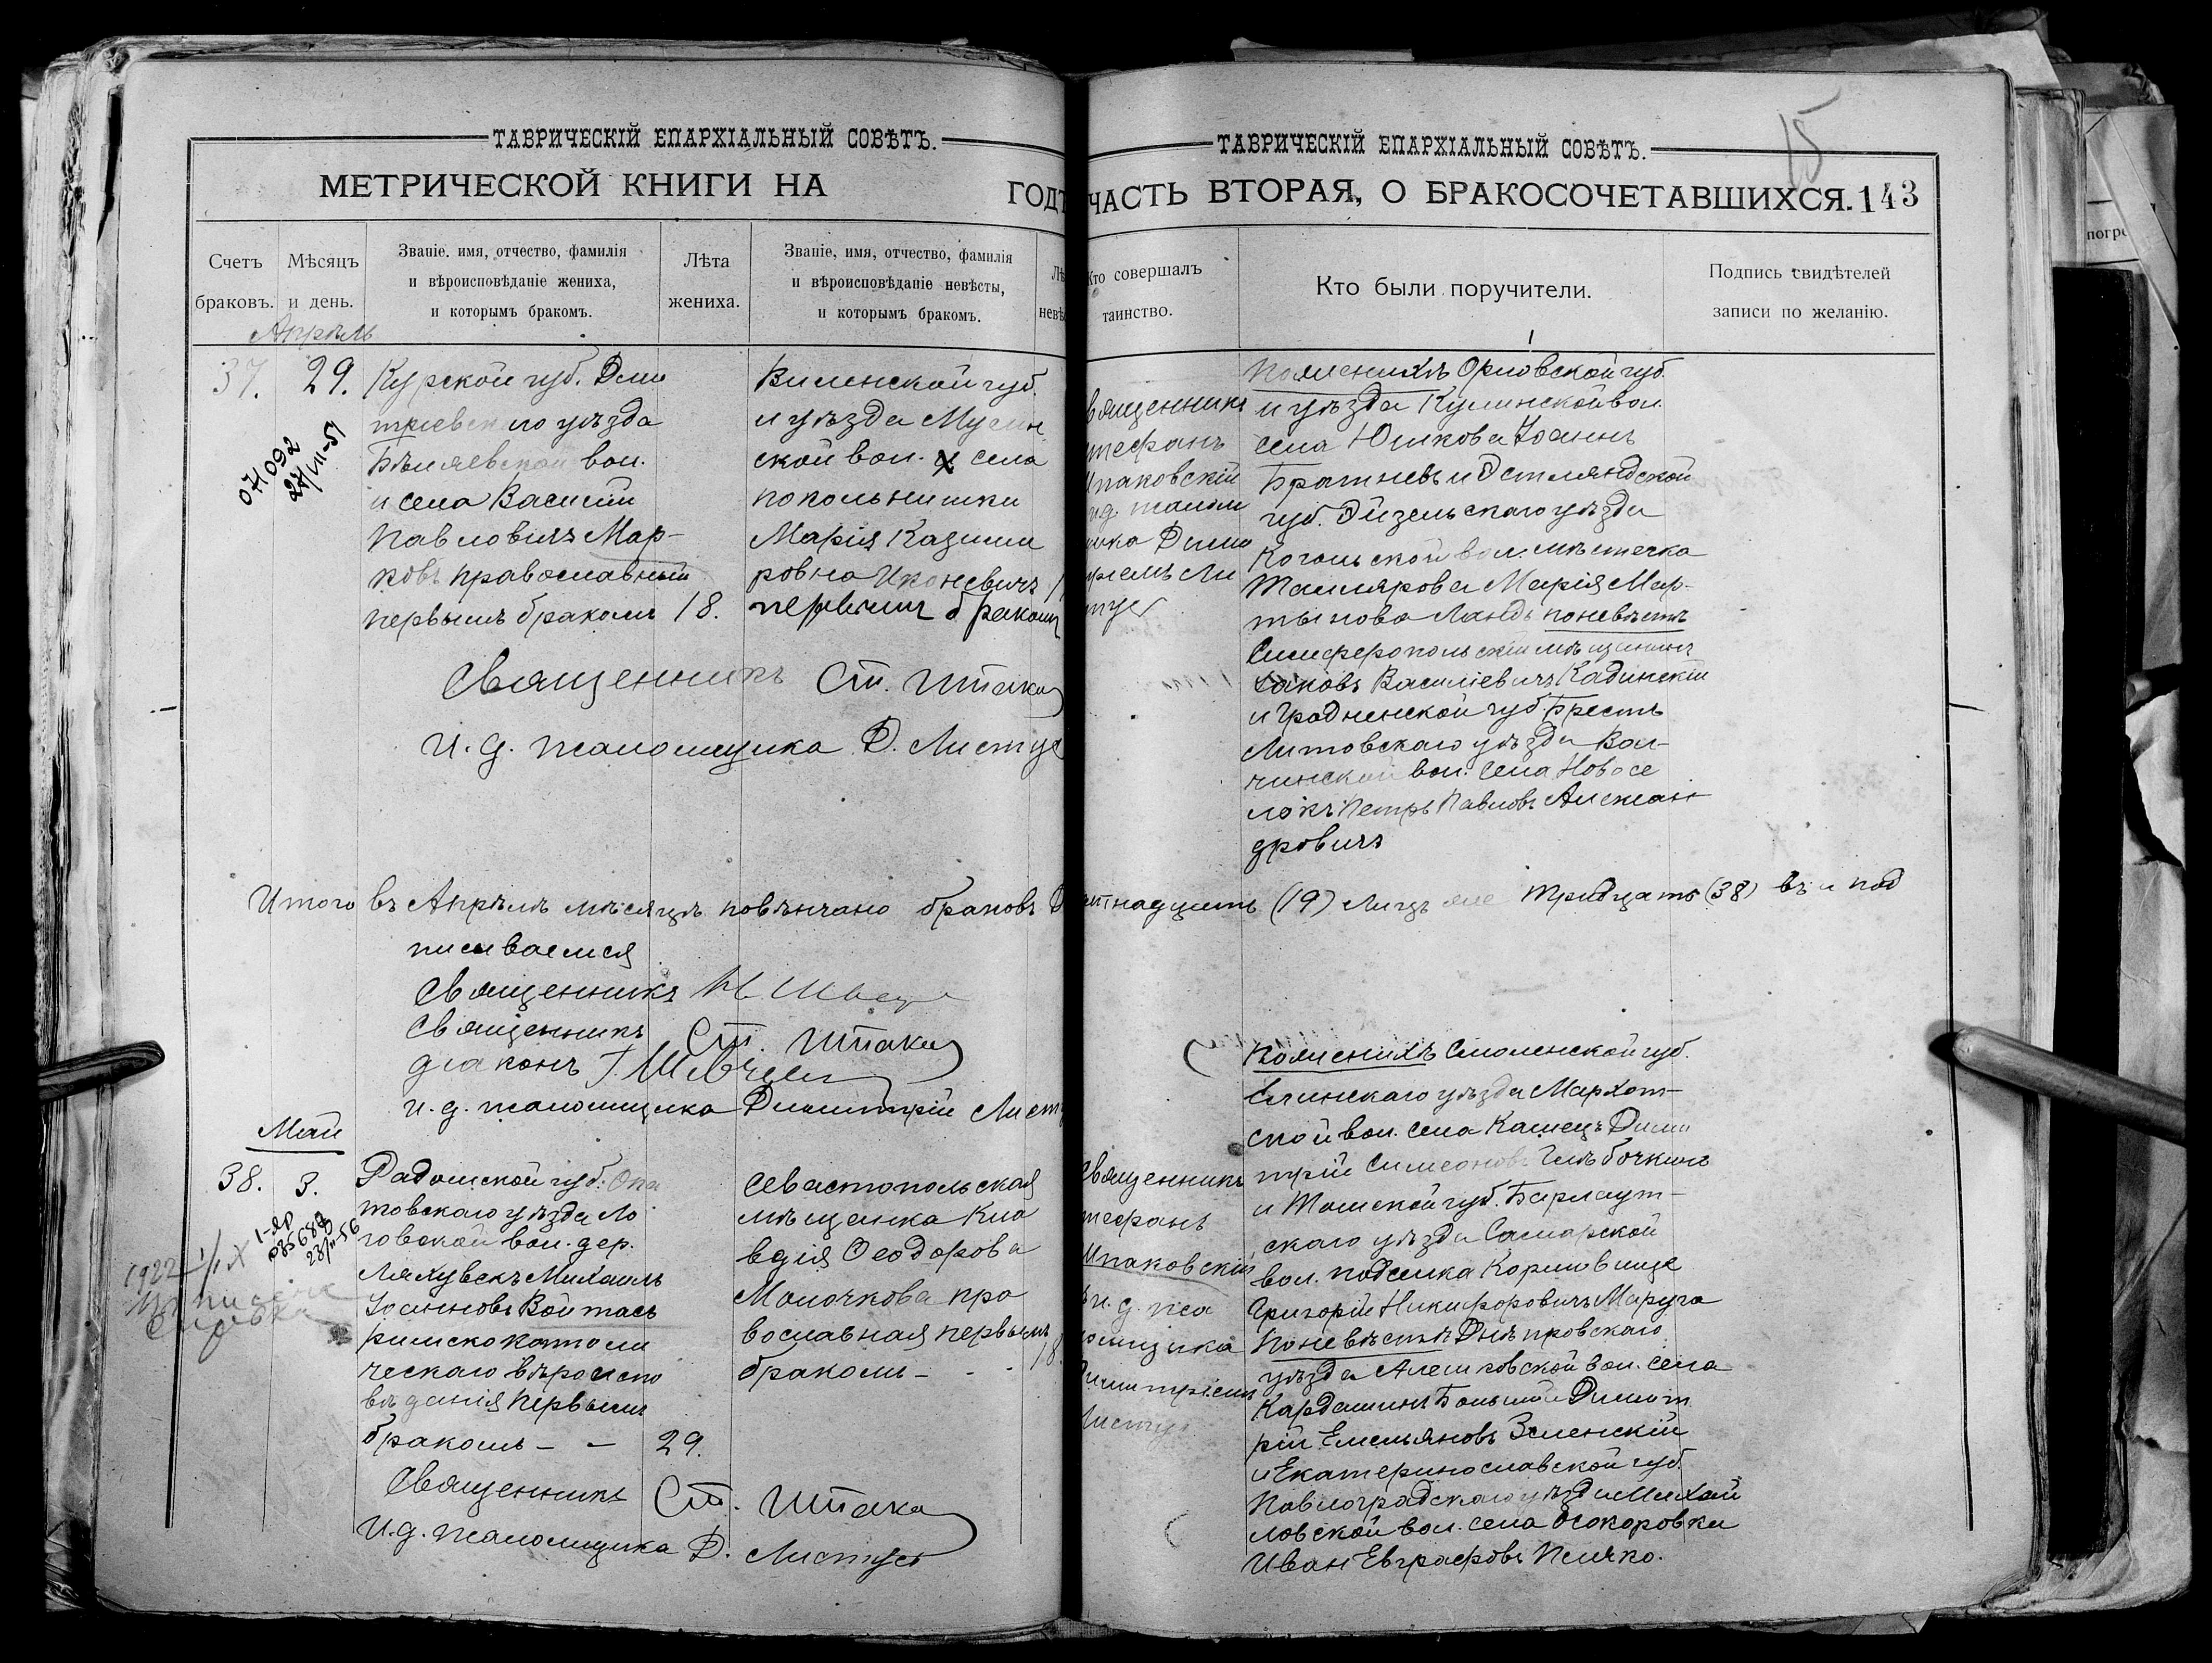 ТАВРИЧЕСКІЙ ЕПАРХІАЛЬНЫЙ СОВѢТЪ.
МЕТРИЧЕСКОЙ КНИГИ НА ГОДЪ
Счетъ браковъ.
Мѣсяцъ и день.
Званіе, имя, отчество, фамилія
и вѣроисповѣданіе жениха,
и которымъ бракомъ.
Лѣта жениха.
Званіе, имя, отчество, фамилія
и вѣроисповѣданіе невѣсты,
и которымъ бракомъ.
Апрѣль
37.
29.
071092
27/VII-51
Курской губ. Дми
тріевскаго уѣзда
Бѣляевской вол.
и села Василій
Павловичъ Мар-
ковъ православный
первымъ бракомъ
18.
Виленской губ.
и уѣзда Мусин
ской вол. села
покольнишки
Марія Казими
ровна Иконевичъ
первымъ бракомъ
Священникъ Ст. Шпаков
И. д. псаломщика Д. Листус
Итого въ Апрѣлѣ мѣсяцѣ повѣнчано браковъ
писываемся
Священникъ
Священникъ Ст. Шпаков
діаконъ
и. д. псаломщика Димитрій Лист
Май
38.
3.
1-яр
23/II-56
1922 1/IX
справка
Радомской губ. Опа
товскаго уѣзда Ло
говской вол. дер.
Ляхувекъ Михаилъ
Іоанновъ Войтась
римскокатоли
ческаго вѣроиспо
вѣданія первымъ
бракомъ - -
29.
Севастопольская
мѣщанка Кла
вдія Ѳеодорова
Молочкова пра
вославная первымъ
бракомъ - -
18.
Священникъ Ст. Шпаков
И. д. псаломщика Д. Листус
ТАВРИЧЕСКІЙ ЕПАРХІАЛЬНЫЙ СОВѢТЪ.
15
ЧАСТЬ ВТОРАЯ, О БРАКОСОЧЕТАВШИХСЯ. 143
Кто совершалъ таинство.
Кто были поручители.
Подпись свидѣтелей
записи по желанію.
вященникъ
тефанъ
Шпаковскій
ид. псалом
щика Дими
тріемъ Ли
стус
По женихѣ Орловской губ.
и уѣзда Кулинской вол.
села Юшкова Іоаннъ
Братневъ и Эстляндской
губ. Эйзельскаго уѣзда
Когольской вол. мѣстечка
Таммярова Марія Мар-
тынова Ландъ по невѣстѣ
Симферопольскій мѣщанинъ
Іаковъ Василіевичъ Кадинскій
и Гродненской губ Брестъ
Литовскаго уѣзда Вол-
чинской вол. села Новосе
локъ Петръ Павловъ Алексан
дровичъ
тнадцать (19) лицъ же тридцать (38) въ и под
По женихѣ Смоленской губ.
Елинскаго уѣзда Мархот-
ской вол. села Кашецъ Дими
трій Симеоновъ Глѣбочкинъ
и Томской губ. Барнаул-
скаго уѣзда Самарской
вол. поселка Кормовище
Григорій Никифоровичъ Маруга
По невѣстѣ Днѣпровскаго
уѣзда Алешковской вол. села
Кардашинъ Большой Димит
рій Емельяновъ Зеленскій
и Екатеринославской губ.
Павлоградскаго уѣзда Михай
ловской вол. села Осокоровки
Иван Евграфовъ Пличко.
Священникъ
тефанъ
Шпаковскій
и. д. пса
ломщика
Димитріемъ
Листус